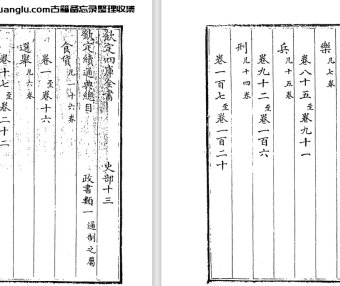 uanglu.com古籍备忘录整理收集
欽定四庫全書 史部十三
欽定續通典總目 政書類一 通制之屬
食貨 凡十六卷
卷一至卷十六
選舉 凡六卷
卷十七至卷二十二
樂 凡七卷
卷八十五至卷九十一
兵 凡十五卷
卷九十二至卷一百六
刑 凡十四卷
卷一百七至卷一百二十